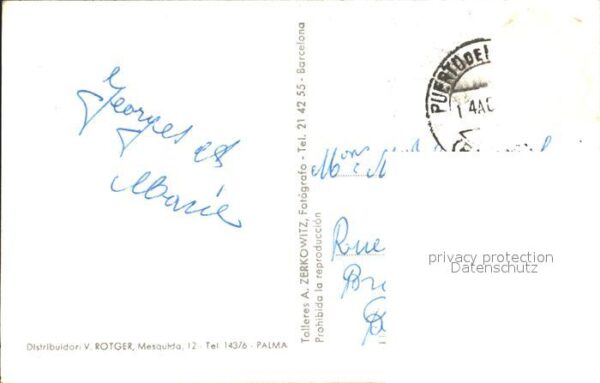 Georges et
Marie
Distribuidor: V. ROTGER, Mesquida, 12 - Tel. 14376 - PALMA
Talleres A. ZERKOWITZ, Fotógrafo - Tel. 21 42 55 - Barcelona
Prohibida la reproducción
PUERTO DE
4 AG
Rue
privacy protection
Datenschutz